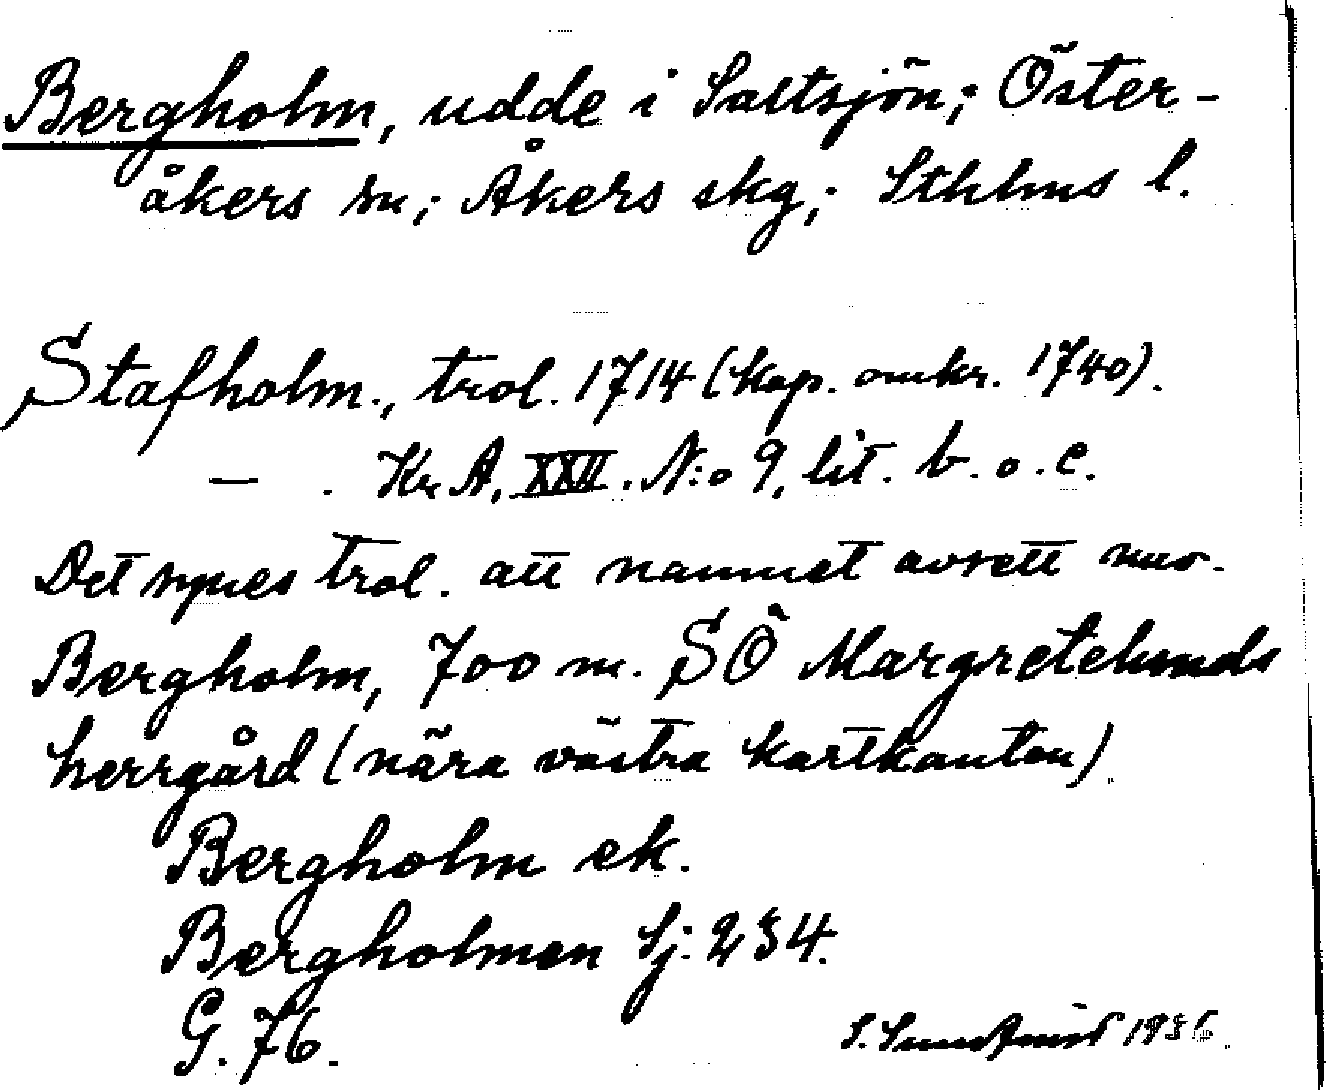 Bergholm, udde i Saltsjön; Öster-
åkers sn; Åkers skg; Sthlms l.
Stafholm., trol. 1714 (kop. omkr. 1740).
— . Kr A, XXII. N:o 9, lit. b. o. c.
Det synes trol. att namnet avsett nuv.
Bergholm, 700 m. SÖ Margretelunds
herrgård (nära västra kartkanten).
Bergholm ek.
Bergholmen Sj: 234.
G. 76.
S. Sundquist